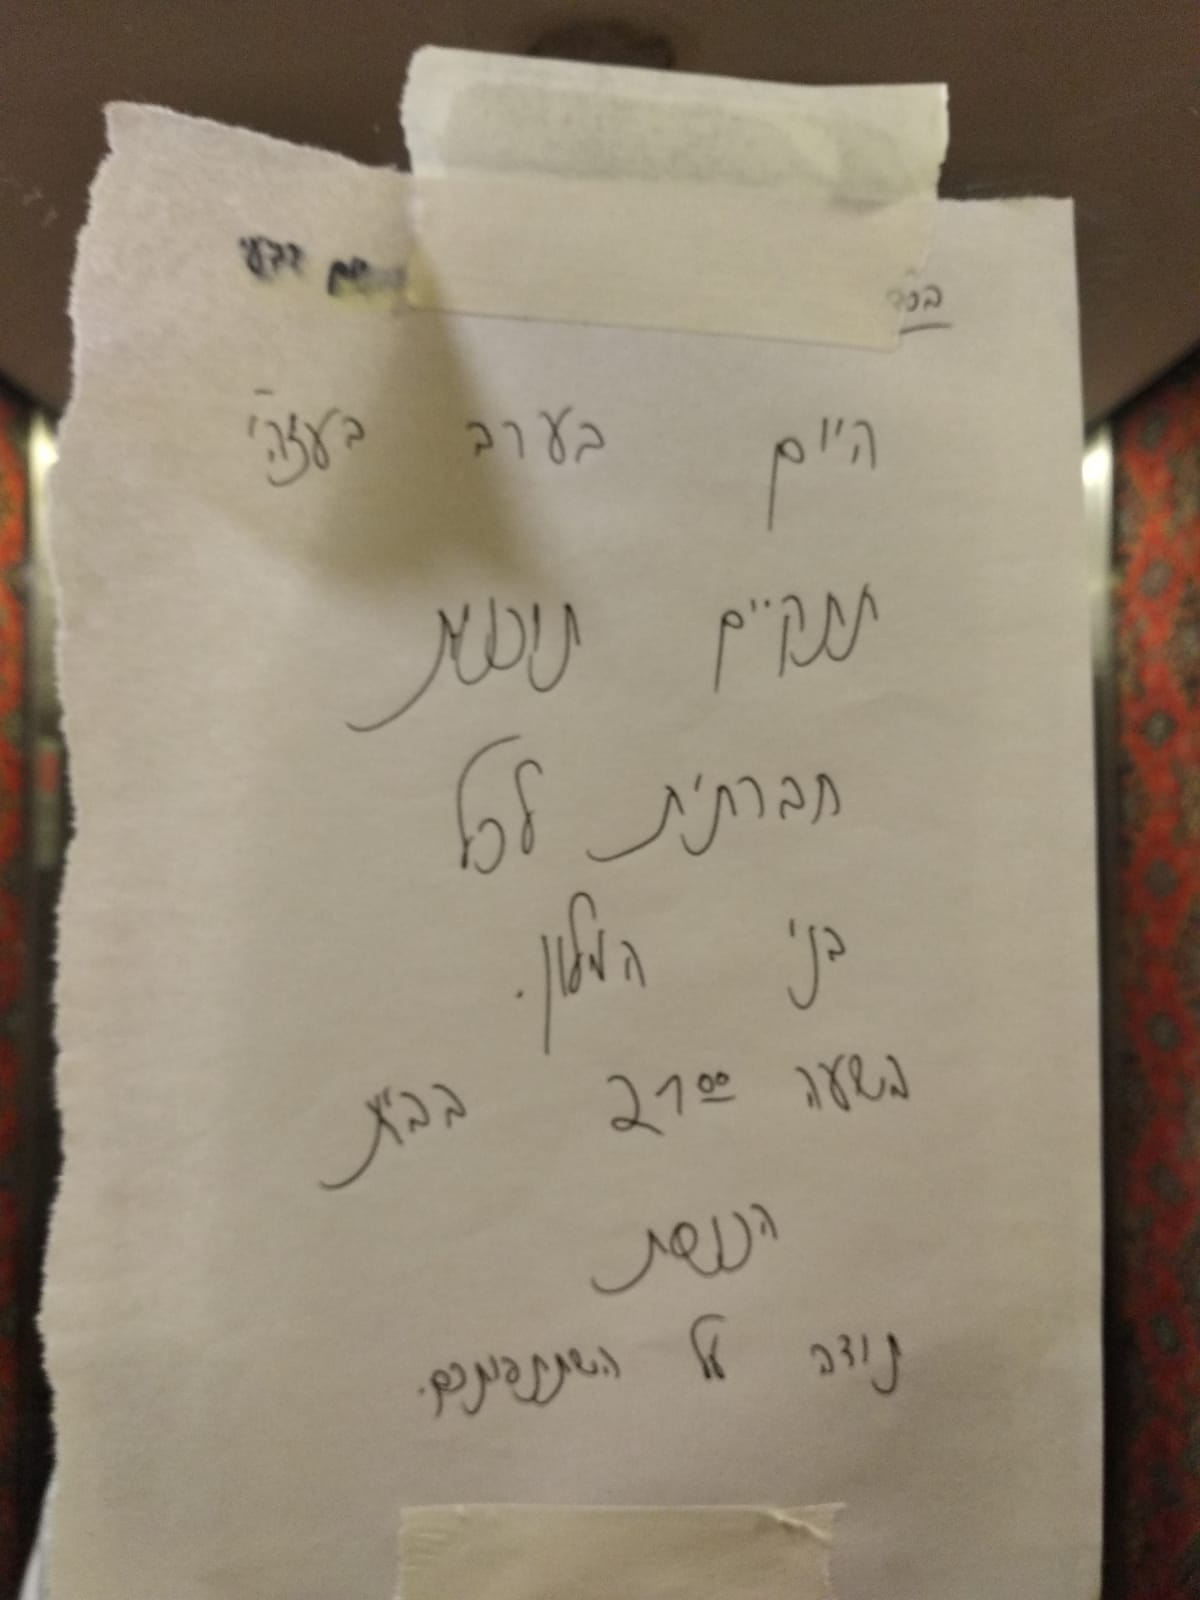 בס"ד
היום בערב בעזה"י
תתקיים תוכנית
חברתית לכל
בני המלון.
בשעה 21:00 בבית
הכנסת
תודה על השתתפותכם.